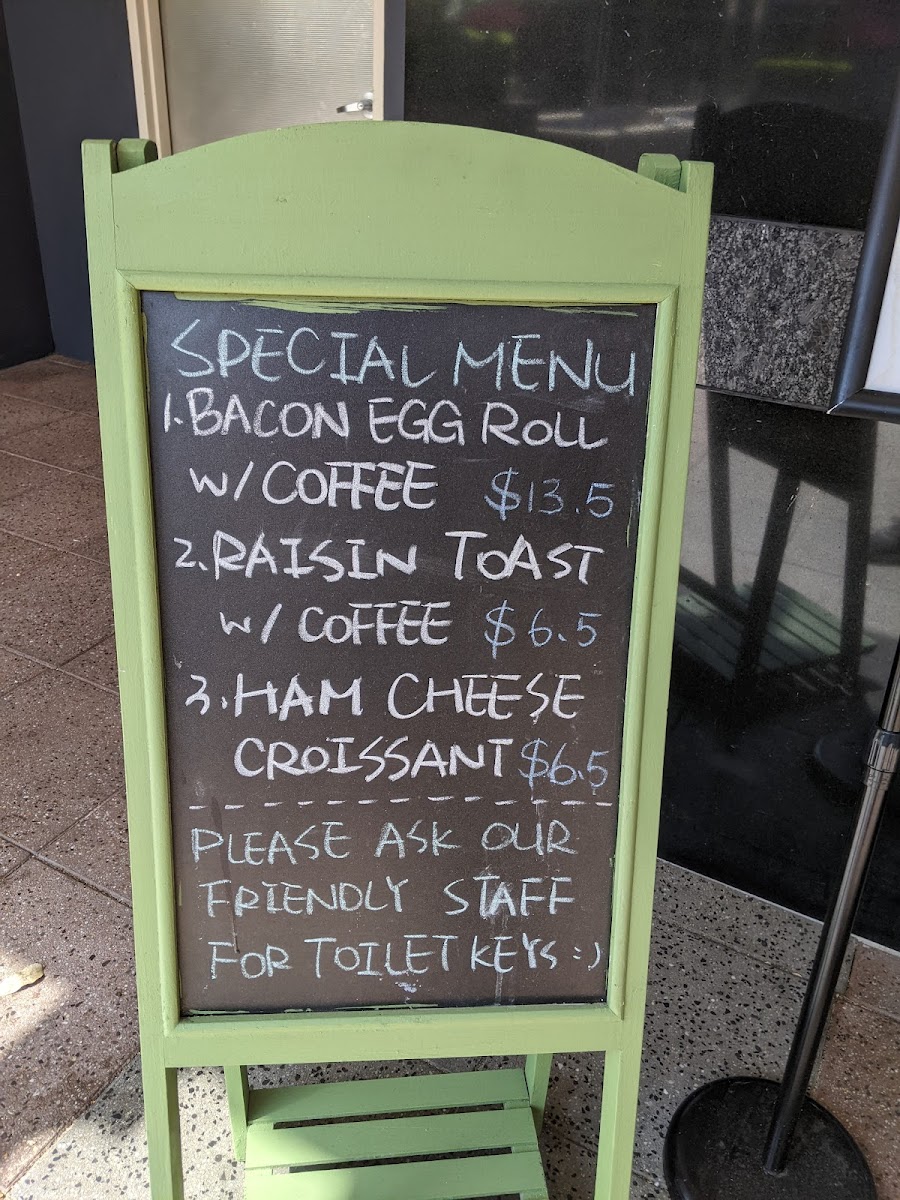 SPECIAL MENU
1. BACON EGG ROLL
W/ COFFEE $13.5
2. RAISIN TOAST
W/ COFFEE $6.5
3. HAM CHEESE
CROISSANT $6.5
PLEASE ASK OUR
FRIENDLY STAFF
FOR TOILET KEYS :)